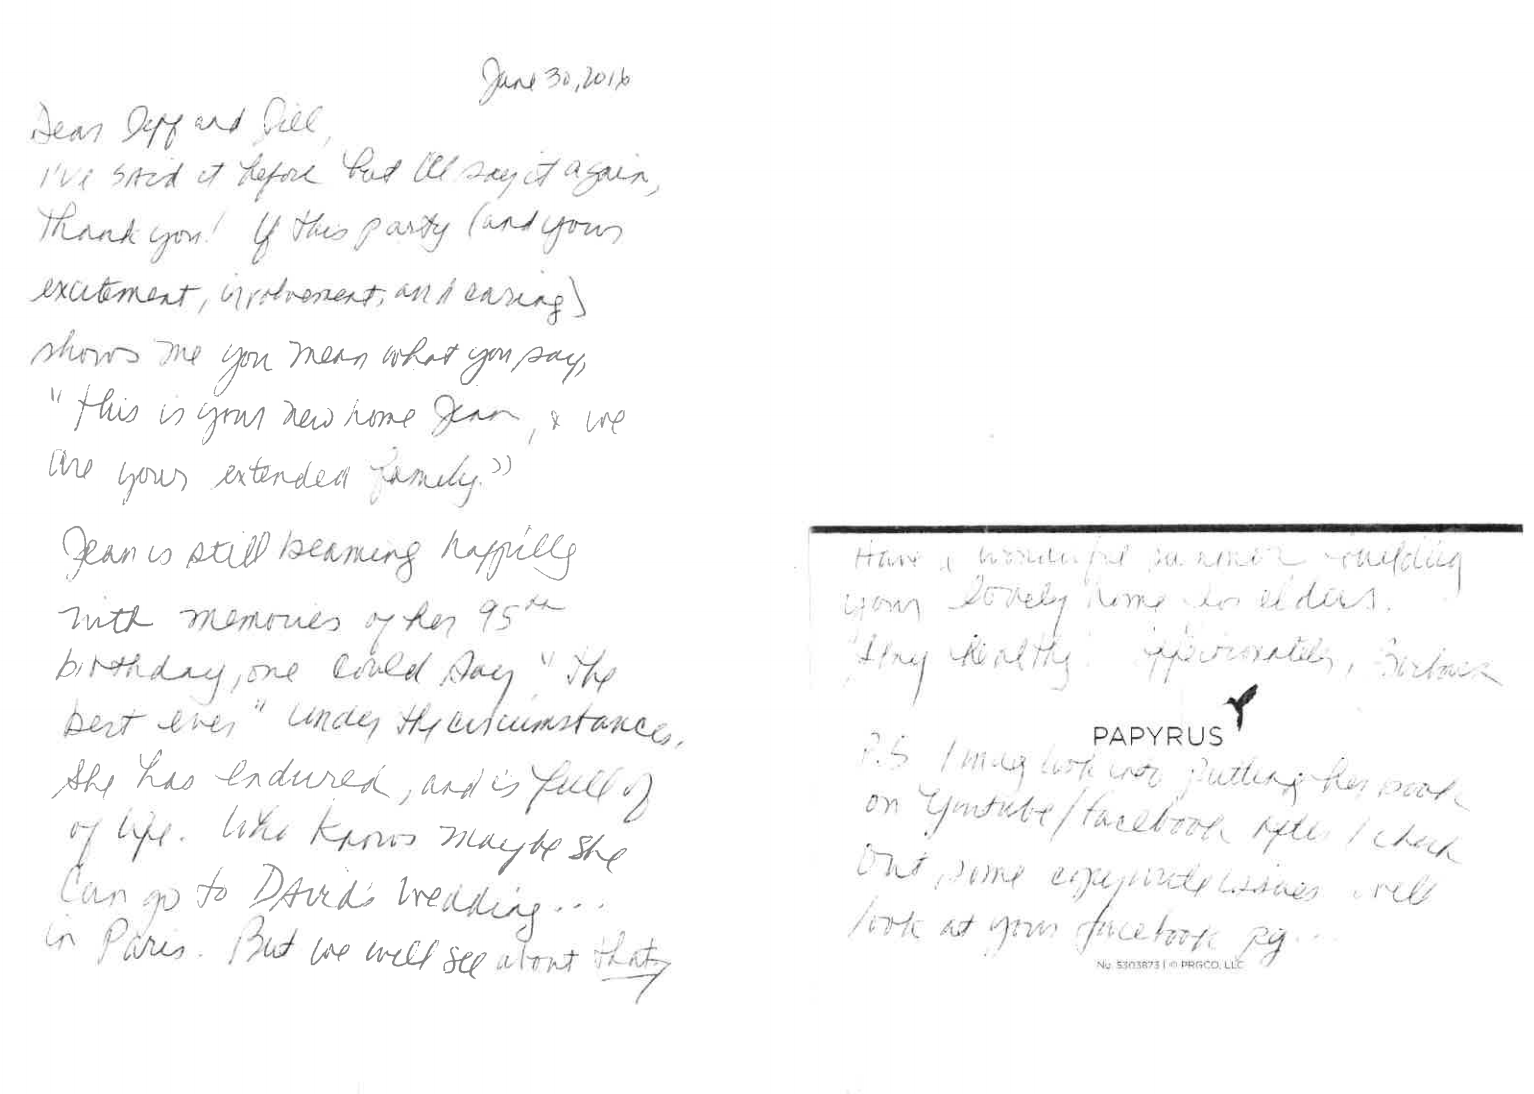 June 30, 2016
Dear Jeff and Jill,
I've said it before but I'll say it again,
Thank you! If this party (and your
excitement, involvement, and caring)
shows me you mean what you say,
"this is your new home Jean, & we
are your extended family."
Jean is still beaming happily
with memories of her 95th
birthday, one could say "the
best ever" under the circumstances.
She has endured, and is full of
of life. Who knows maybe she
can go to David's wedding...
in Paris. But we will see about that,
Have a wonderful summer building
your lovely home for elders.
Stay healthy! Barbara
PAPYRUS
P.S I may look into putting her book
on Youtube/facebook after I check
out some copywrite issues will
look at your facebook pg...
No. 5303873 | © PRGCO, LLC